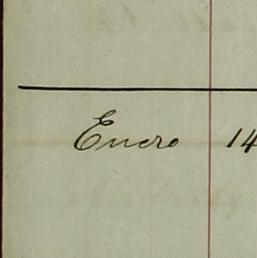 Enero 14